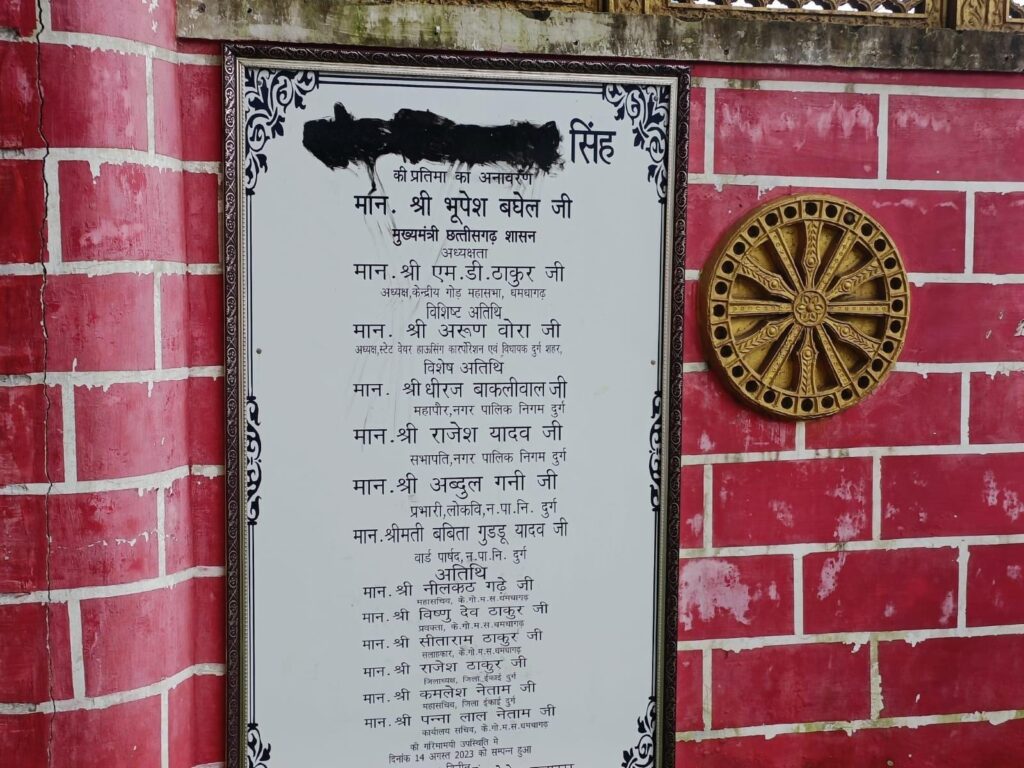 सिंह
की प्रतिमा का अनावरण
मान. श्री भूपेश बघेल जी
मुख्यमंत्री छत्तीसगढ़ शासन
अध्यक्षता
मान.श्री एम.डी.ठाकुर जी
अध्यक्ष,केन्द्रीय गोड़ महासभा, धमधागढ़
विशिष्ट अतिथि
मान. श्री अरूण वोरा जी
अध्यक्ष,स्टेट वेयर हाऊसिंग कार्पोरेशन एवं विधायक दुर्ग शहर,
विशेष अतिथि
मान. श्री धीरज बाकलीवाल जी
महापौर,नगर पालिक निगम दुर्ग
मान.श्री राजेश यादव जी
सभापति,नगर पालिक निगम दुर्ग
मान.श्री अब्दुल गनी जी
प्रभारी,लोकवि,न.पा.नि. दुर्ग
मान.श्रीमती बबिता गुड्डू यादव जी
वार्ड पार्षद,न.पा.नि. दुर्ग
अतिथि
मान. श्री नीलकठ गढ़े जी
महासचिव, कें.गो.म.स.धमधागढ़
मान. श्री विष्णु देव ठाकुर जी
प्रवक्ता, कें.गो.म.स.धमधागढ़
मान. श्री सीताराम ठाकुर जी
सलाहकार, कें.गो.म.स.धमधागढ़
मान. श्री राजेश ठाकुर जी
जिलाध्यक्ष, जिला ईकाई दुर्ग
मान. श्री कमलेश नेताम जी
महासचिव, जिला ईकाई दुर्ग
मान. श्री पन्ना लाल नेताम जी
कार्यालय सचिव, कें.गो.म.स.धमधागढ़
की गरिमामयी उपस्थिति मे
दिनांक 14 अगस्त 2023 को सम्पन्न हुआ